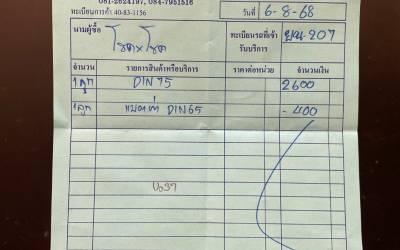 081-2624197, 084-7951516
ทะเบียนการค้า 40-83-1156
วันที่ 6-8-68
นามผู้ซื้อ โชคxโชค
ทะเบียนรถที่เข้ารับบริการ 207
จำนวน รายการสินค้าหรือบริการ ราคาต่อหน่วย จำนวนเงิน
1 ลูก DIN 75 2600
1 ลูก แบตเก่า DIN 65 -400